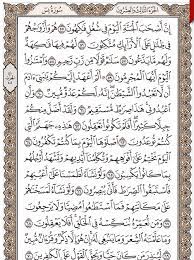 الجزء الثالث والعشرون سورة يس
إِنَّ أَصْحَٰبَ ٱلْجَنَّةِ ٱلْيَوْمَ فِى شُغُلٍ فَٰكِهُونَ ٥٥ هُمْ وَأَزْوَٰجُهُمْ
فِى ظِلَٰلٍ عَلَى ٱلْأَرَآئِكِ مُتَّكِـُٔونَ ٥٦ لَهُمْ فِيهَا فَٰكِهَةٌ
وَلَهُم مَّا يَدَّعُونَ ٥٧ سَلَٰمٌ قَوْلًا مِّن رَّبٍّ رَّحِيمٍ ٥٨ وَٱمْتَٰزُوا۟
ٱلْيَوْمَ أَيُّهَا ٱلْمُجْرِمُونَ ٥٩ ۞ أَلَمْ أَعْهَدْ إِلَيْكُمْ يَٰبَنِىٓ ءَادَمَ
أَن لَّا تَعْبُدُوا۟ ٱلشَّيْطَٰنَ إِنَّهُۥ لَكُمْ عَدُوٌّ مُّبِينٌ ٦٠
وَأَنِ ٱعْبُدُونِى هَٰذَا صِرَٰطٌ مُّسْتَقِيمٌ ٦١ وَلَقَدْ أَضَلَّ مِنكُمْ
جِبِلًّا كَثِيرًا أَفَلَمْ تَكُونُوا۟ تَعْقِلُونَ ٦٢ هَٰذِهِۦ جَهَنَّمُ ٱلَّتِى
كُنتُمْ تُوعَدُونَ ٦٣ ٱصْلَوْهَا ٱلْيَوْمَ بِمَا كُنتُمْ تَكْفُرُونَ ٦٤
ٱلْيَوْمَ نَخْتِمُ عَلَىٰٓ أَفْوَٰهِهِمْ وَتُكَلِّمُنَآ أَيْدِيهِمْ وَتَشْهَدُ أَرْجُلُهُم
بِمَا كَانُوا۟ يَكْسِبُونَ ٦٥ وَلَوْ نَشَآءُ لَطَمَسْنَا عَلَىٰٓ أَعْيُنِهِمْ
فَٱسْتَبَقُوا۟ ٱلصِّرَٰطَ فَأَنَّىٰ يُبْصِرُونَ ٦٦ وَلَوْ نَشَآءُ لَمَسَخْنَٰهُمْ
عَلَىٰ مَكَانَتِهِمْ فَمَا ٱسْتَطَٰعُوا۟ مُضِيًّا وَلَا يَرْجِعُونَ ٦٧
وَمَن نُّعَمِّرْهُ نُنَكِّسْهُ فِى ٱلْخَلْقِ أَفَلَا يَعْقِلُونَ ٦٨
وَمَا عَلَّمْنَٰهُ ٱلشِّعْرَ وَمَا يَنۢبَغِى لَهُۥٓ إِنْ هُوَ إِلَّا ذِكْرٌ وَقُرْءَانٌ